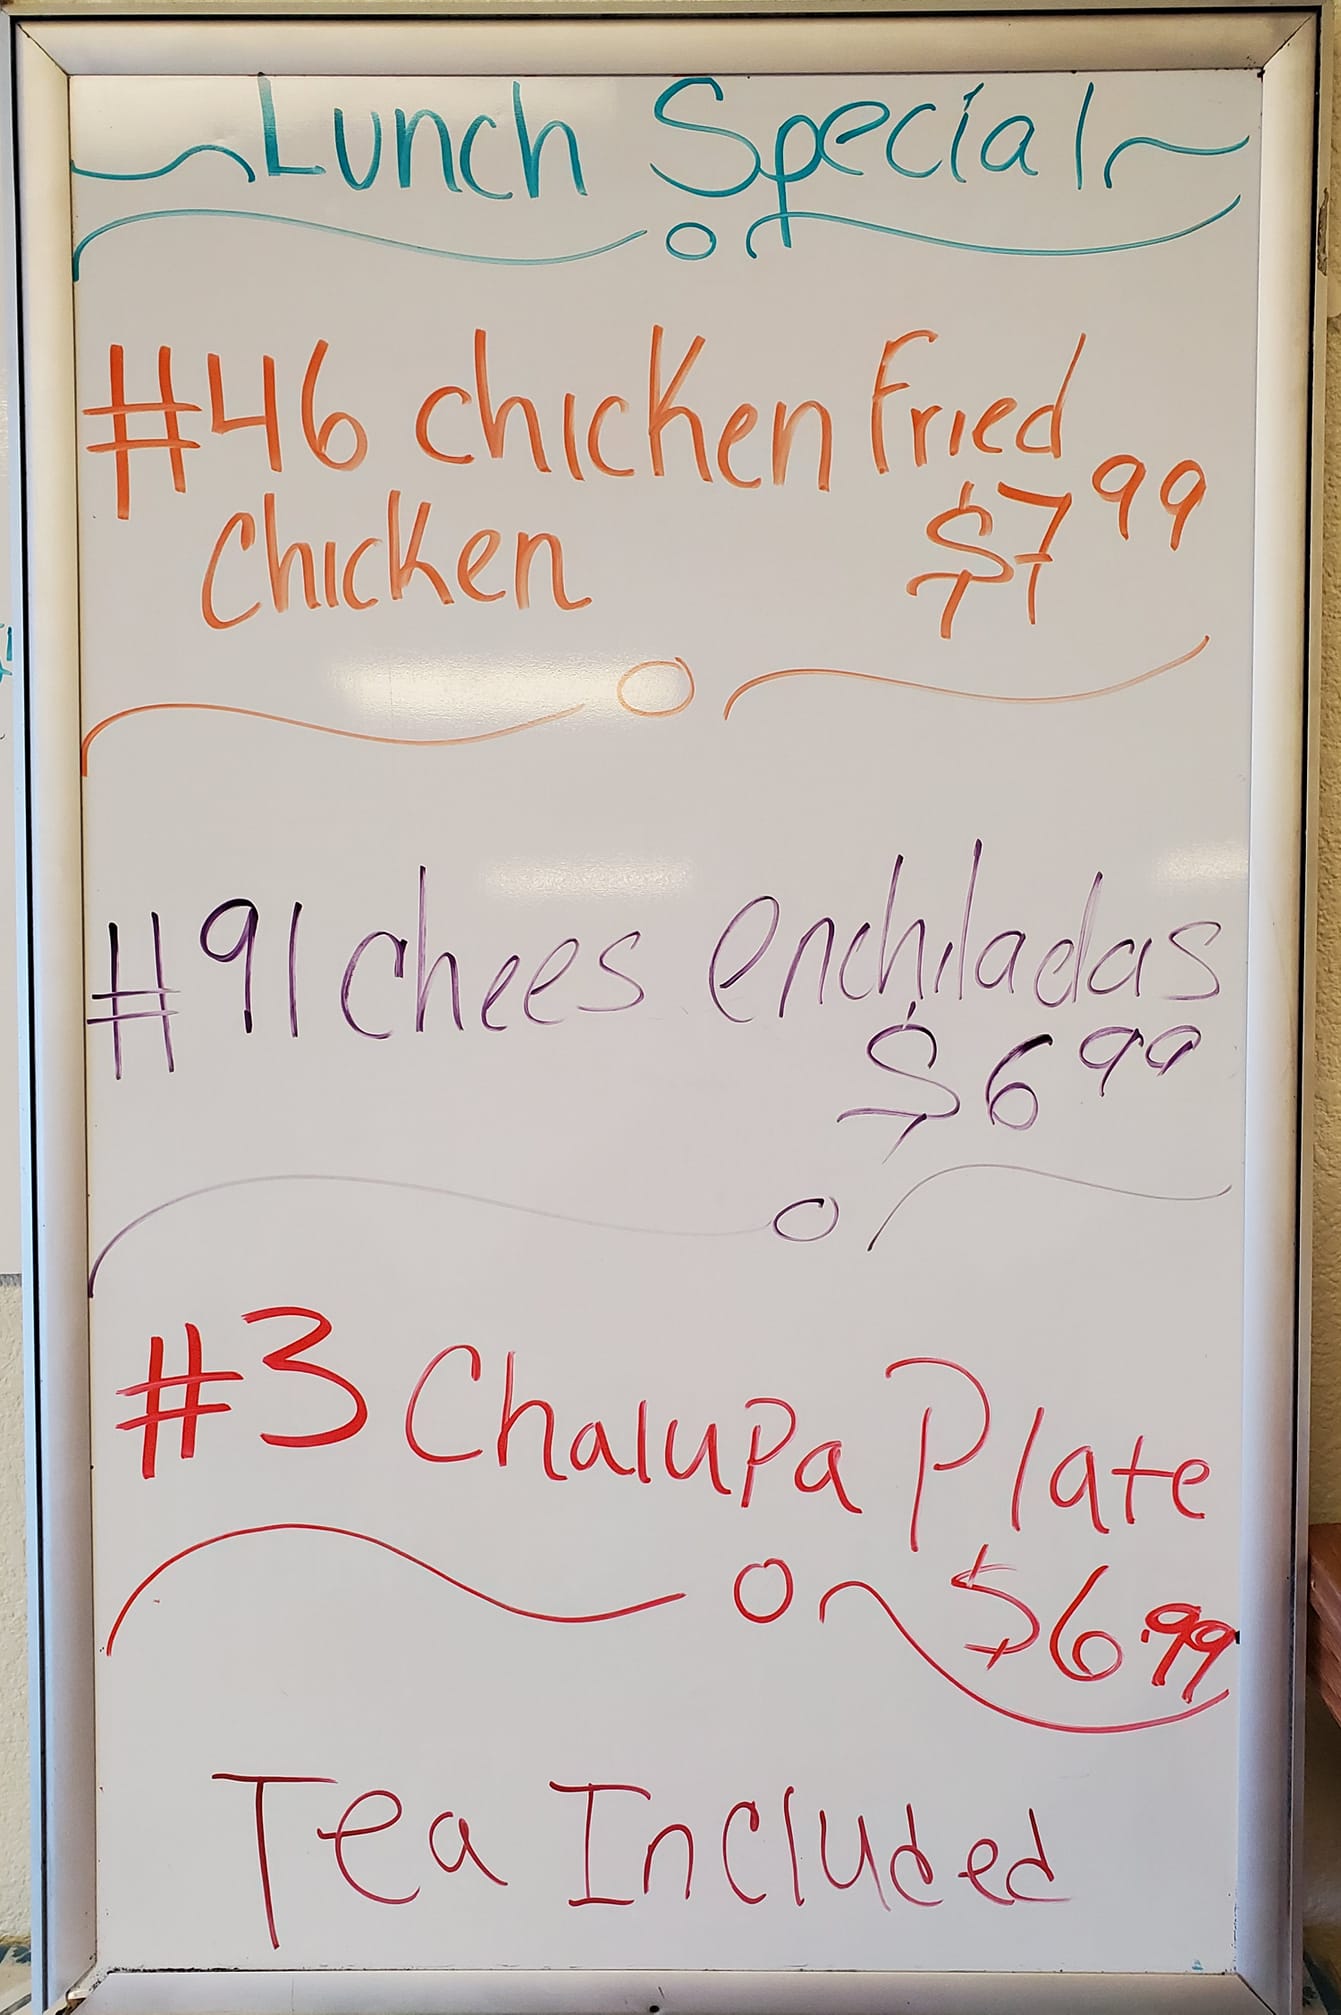 Lunch Special
#46 chicken fried
chicken $7 99
#91 chees enchiladas
$6 99
#3 Chalupa Plate
$6.99
Tea Included